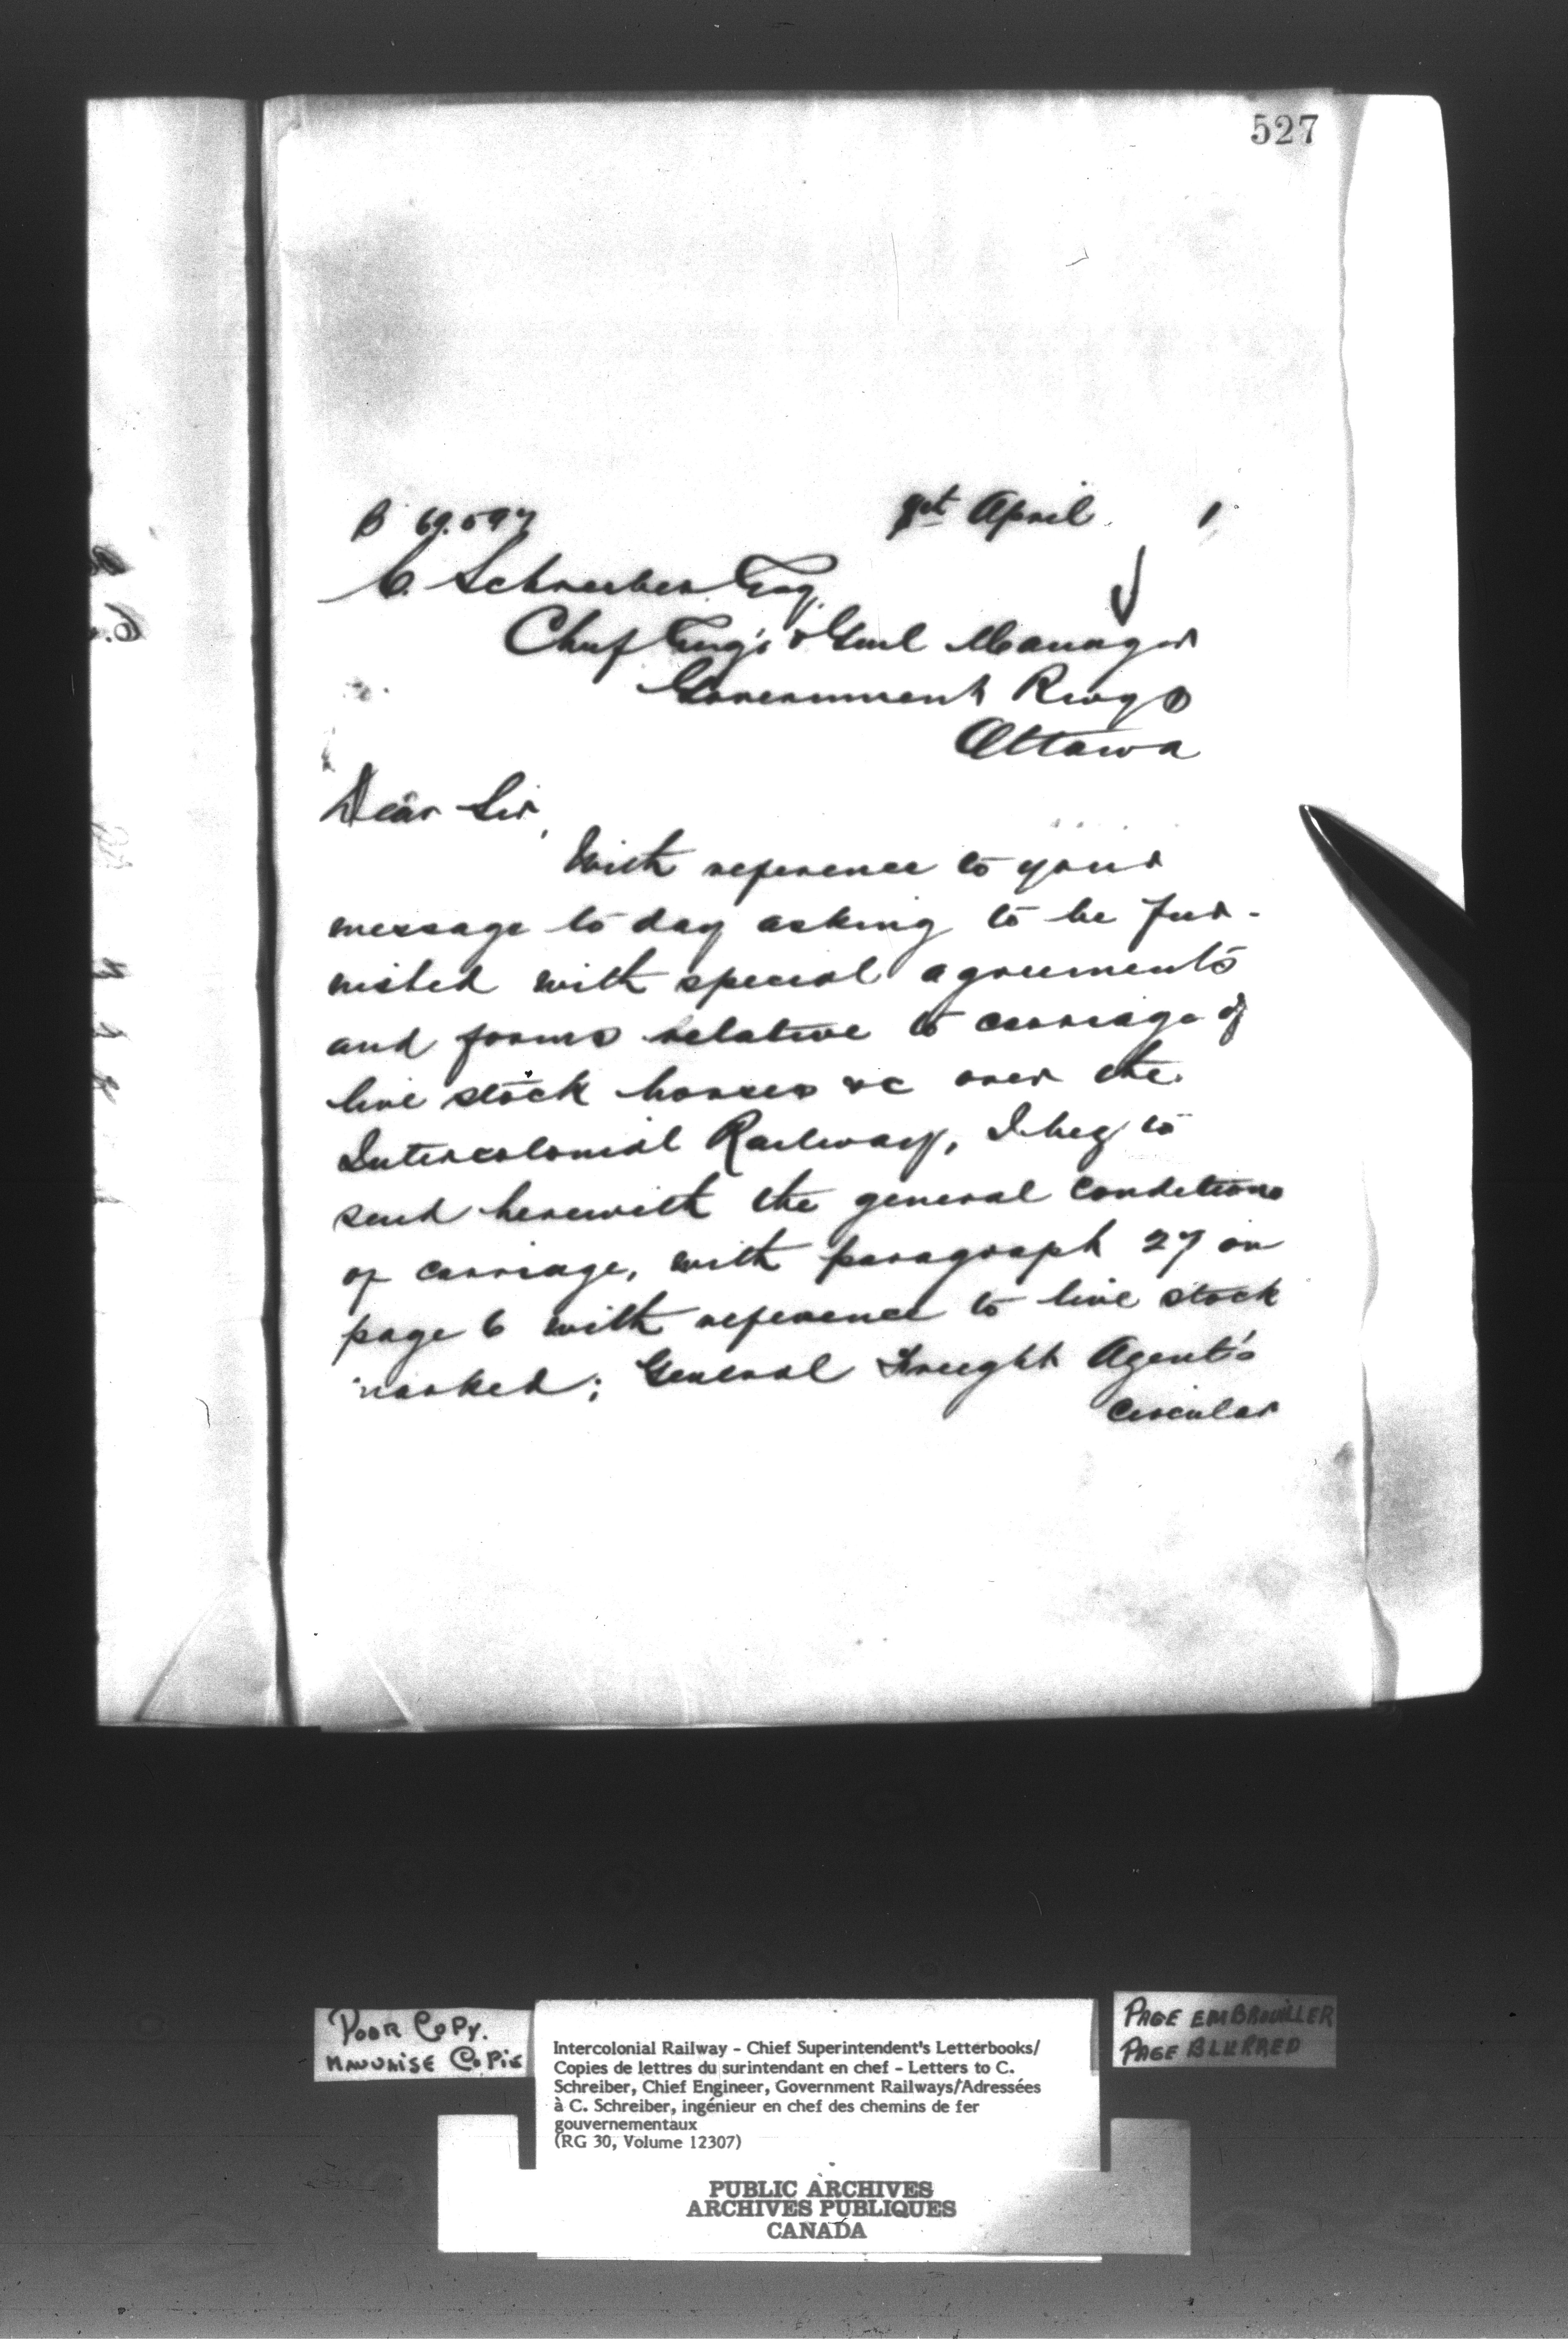 527
B 69.597
April 1
C. Schreiber Esq
Chief Engr & Genl Manager
Government Rwys
Ottawa
Dear Sir,
With reference to your
message to day asking to be fur-
nished with special agreements
and forms relative to carriage of
live stock horses &c over the
Intercolonial Railway, I beg to
send herewith the general conditions
of carriage, with paragraph 27 on
page 6 with reference to live stock
marked; General Freight Agent's
Circular
POOR COPY.
MAUVAISE COPIE
Intercolonial Railway - Chief Superintendent's Letterbooks/
Copies de lettres du surintendant en chef - Letters to C.
Schreiber, Chief Engineer, Government Railways/Adressées
à C. Schreiber, ingénieur en chef des chemins de fer
gouvernementaux
(RG 30, Volume 12307)
PAGE EMBROUILLER
PAGE BLURRED
PUBLIC ARCHIVES
ARCHIVES PUBLIQUES
CANADA